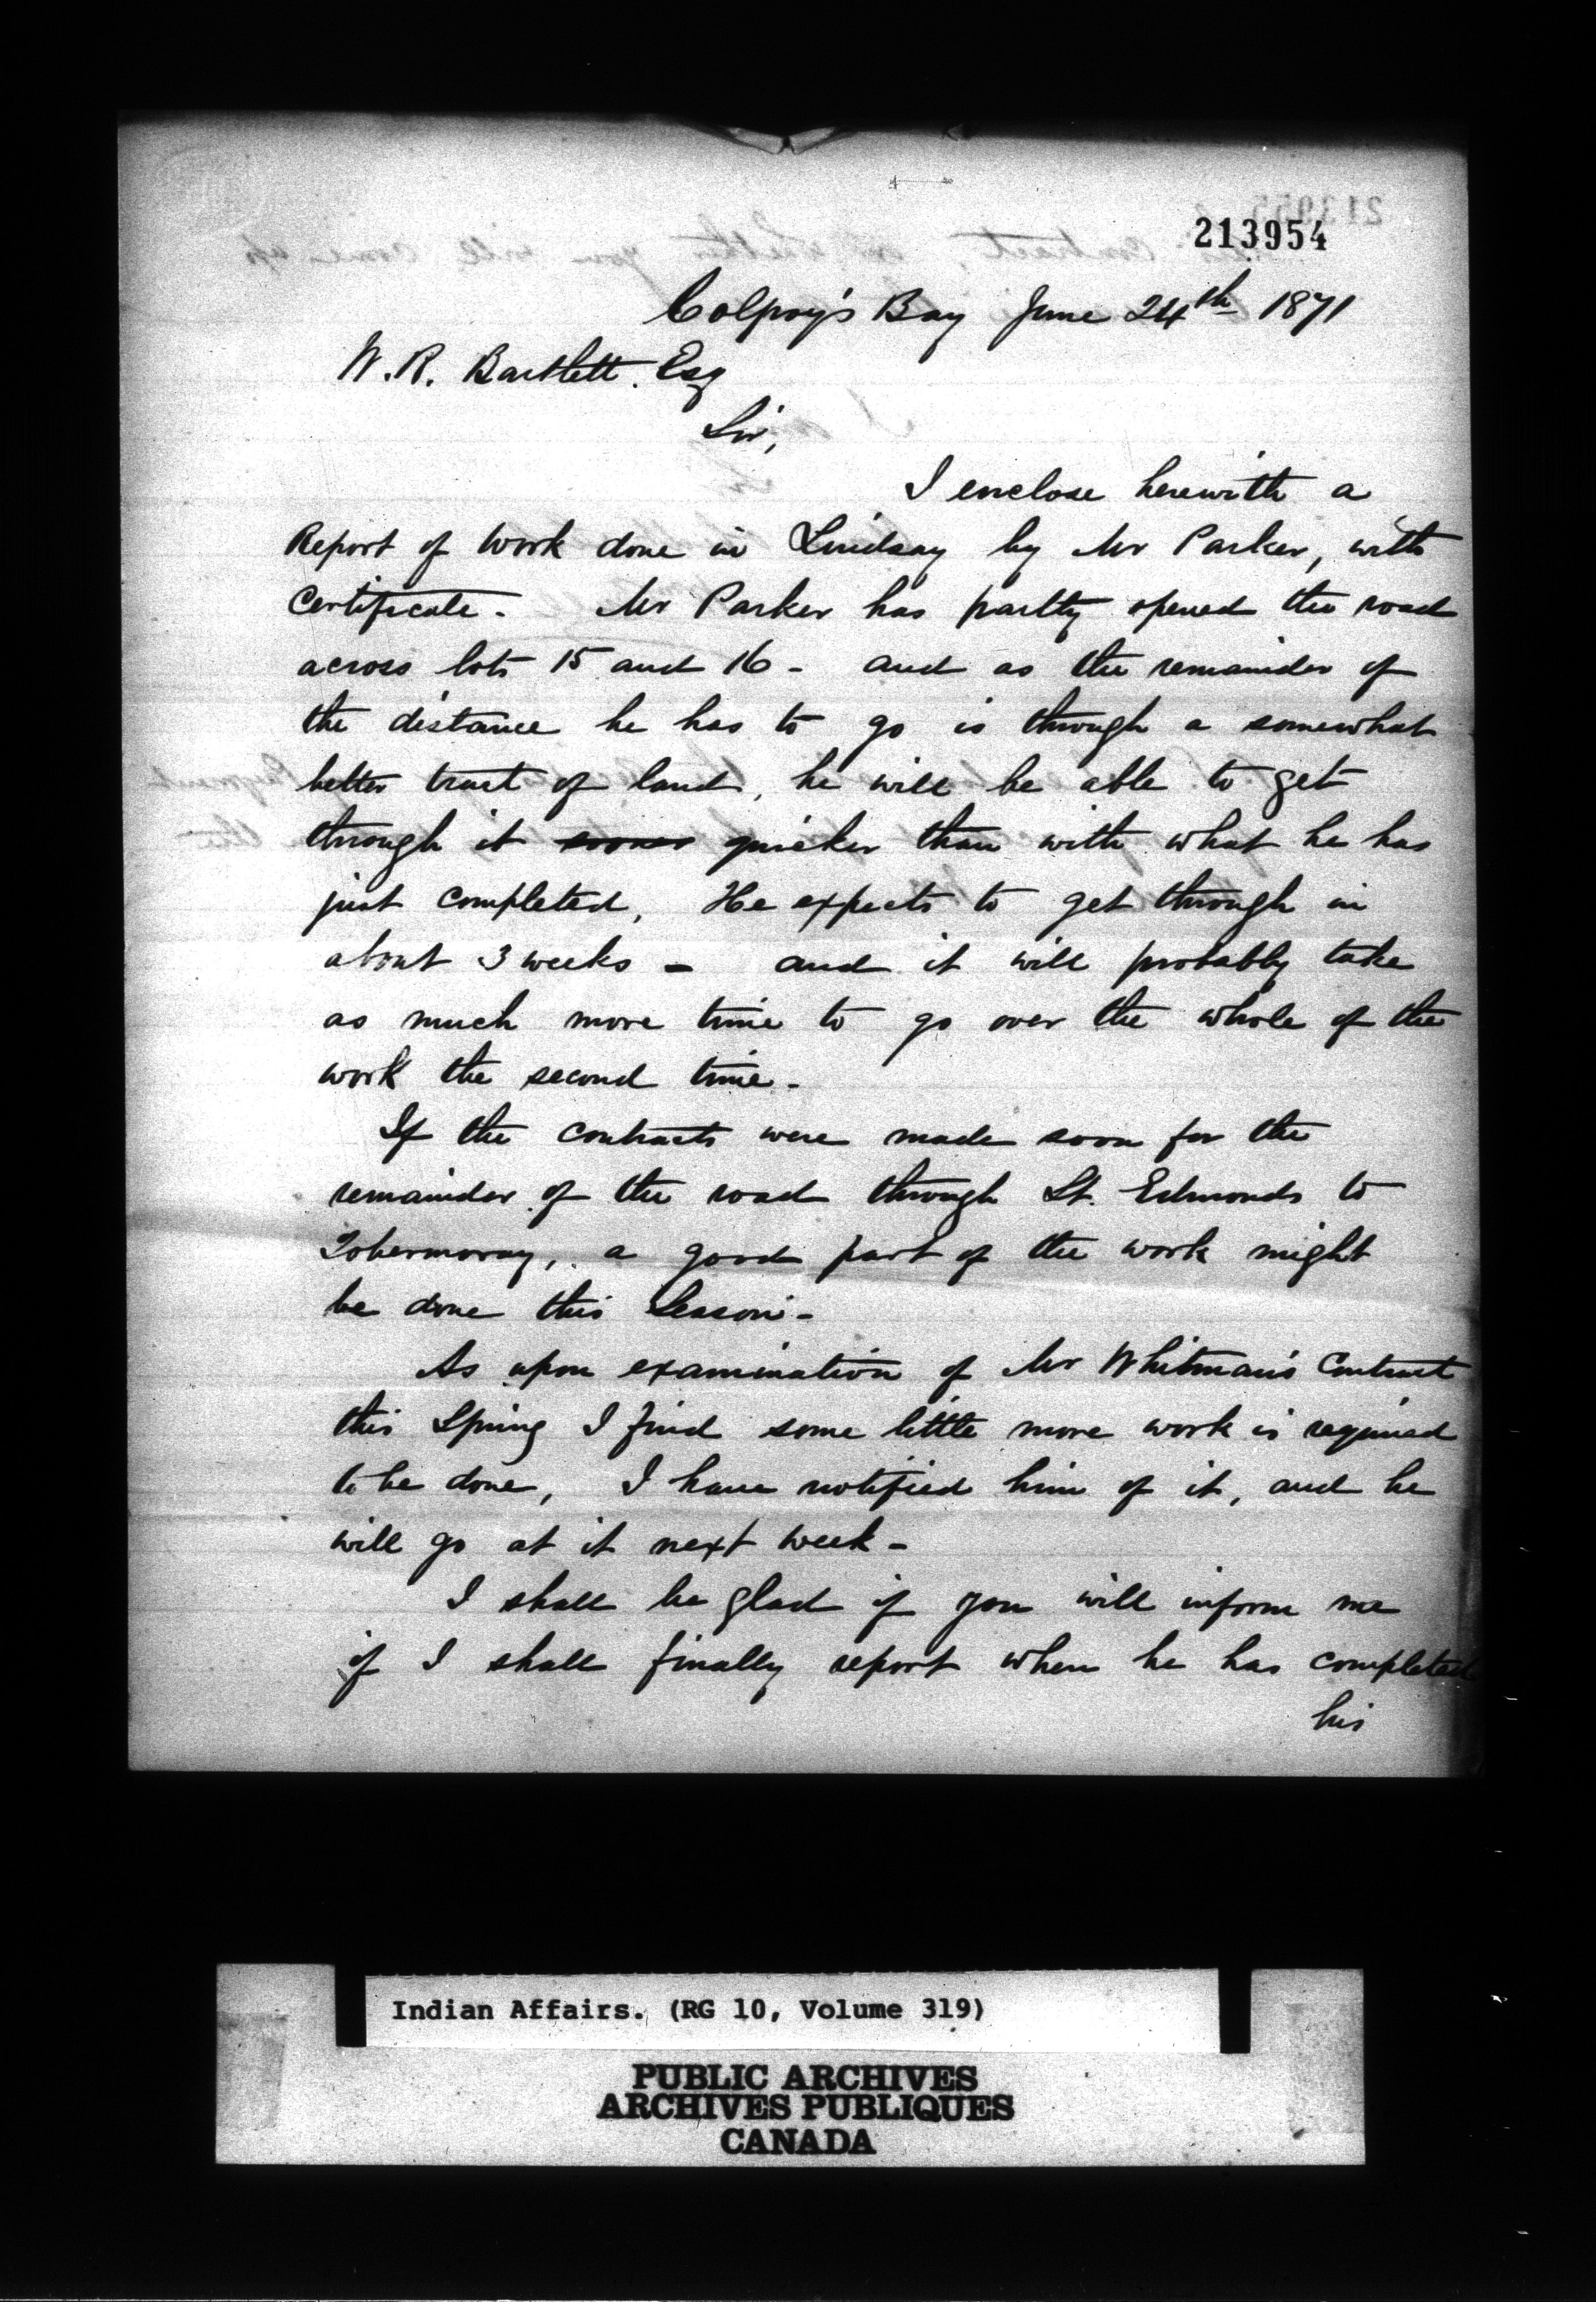 213954
Colpoy's Bay June 24th 1871
W. R. Bartlett. Esq
Sir,
I enclose herewith a
Report of work done in Lindsay by Mr Parker, with
Certificate - Mr Parker has partly opened the road
across lots 15 and 16 - and as the remainder of
the distance he has to go is through a somewhat
better tract of land, he will be able to get
through it sooner quicker than with what he has
just completed, He expects to get through in
about 3 weeks - and it will probably take
as much more time to go over the whole of the
work the second time -
If the contracts were made soon for the
remainder of the road through St. Edmonds to
Tobermoray, a good part of the work might
be done this Season -
As upon examination of Mr Whitman's Contract
this Spring I find some little more work is required
to be done, I have notified him of it, and he
will go at it next week -
I shall be glad if you will inform me
if I shall finally report when he has completed
his
Indian Affairs. (RG 10, Volume 319)
PUBLIC ARCHIVES
ARCHIVES PUBLIQUES
CANADA